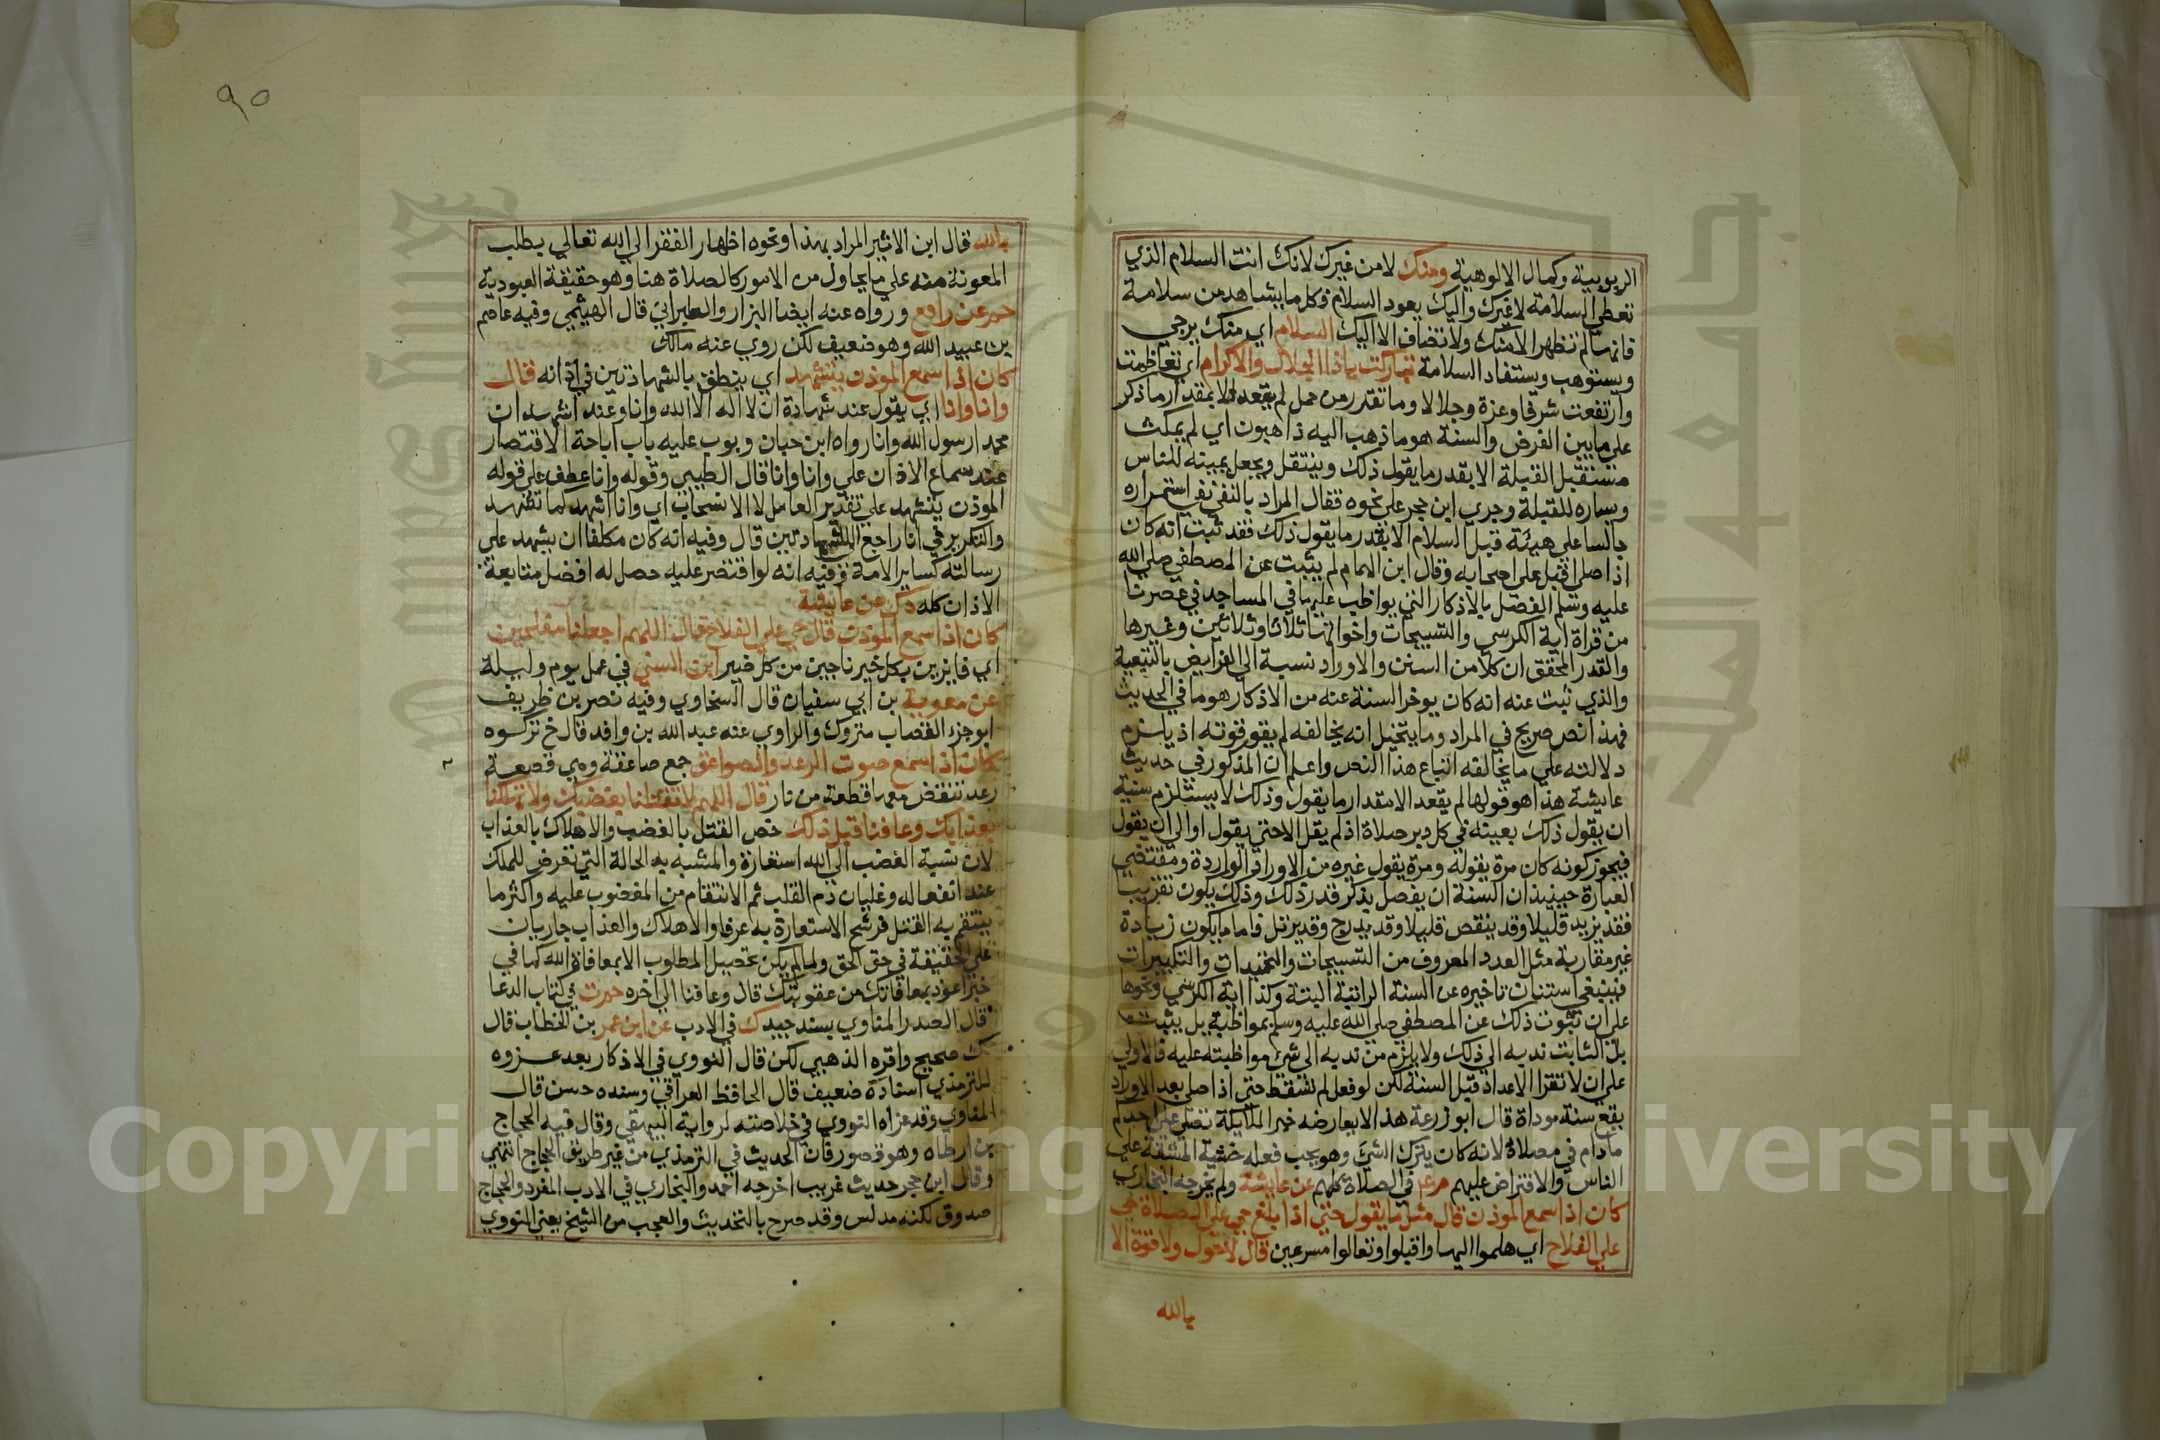 الربوبية وكمال الالوهية ومنك لا من غيرك لانك انت السلام الذي
تعطي السلامة لا غيرك واليك يعود السلام فكلما يشاهد من سلامة
فانها لم تظهر الا منك ولا تضاف الا اليك السلام اي منك يرجي
ويستوهب ويستفاد السلامة تباركت ياذا الجلال والاكرام اي تعاظمت
وارتفعت شرفا وعزة وجلالا وما تقدر من حمل لم يقعد الا بمقدار ما ذكر
علي ما بين الفرض والسنة هو ما ذهب اليه ذاهبون اي لم يمكث
مستقبل القبلة الا بقدر ما يقول ذلك وينتقل ويجعل يمينه للناس
ويساره للقبلة وجري ابن حجر علي نحوه فقال المراد بالنفي نفي استمراره
جالسا علي هيئة قبل السلام الا بقدر ما يقول ذلك فقد ثبت انه كان
اذا صلي اقبل علي اصحابه وقال ابن الهمام لم يثبت عن المصطفي صلي الله
عليه وسلم الفصل بالاذكار التي يواظب عليها في المساجد في عصرنا
من قراة اية الكرسي والتسبيحات واخواتها ثلاثا وثلاثين وغيرها
والقدر المحقق ان كلا من السنن والاوراد نسبة الي الفرايض بالتبعية
والذي ثبت عنه انه كان يوخر السنة عنه من الاذكار هو ما في الحديث
فهذا نص صريح في المراد وما يتخيل انه يخالفه لم يقو قوته اذ يلزم
دلالته علي ما يخالفه اتباع هذا النص واعلم ان المذكور في حديث
عايشة هذا هو قولها لم يقعد الا مقدار ما يقول وذلك لا يستلزم سنية
ان يقول ذلك بعينه في كل دبر صلاة اذ لم يقل الا حتي يقول او الي ان يقول
فيجوز كونه كان مرة يقوله ومرة يقول غيره من الاوراد الواردة ومقتضي
العبارة حينيذ ان السنة ان يفصل بذكر قدر ذلك وذلك يكون تقريبا
فقد يزيد قليلا وقد ينقص قليلا وقد يدرج وقد يرتل فاما ما يكون زيادة
غير مقاربة مثل العدد المعروف من التسبيحات والتحميدات والتكبيرات
فينبغي استنان تاخيره عن السنة الراتبة البتة وكذا اية الكرسي ونحوها
علي ان ثبوت ذلك عن المصطفي صلي الله عليه وسلم بمواظبة بل يثبت
بل الثابت ندبه الي ذلك ولا يلزم من ندبه الي شي مواظبته عليه فالاولي
علي ان لا تقرا الاعداد قبل السنة لكن لو فعل لم تسقط حتي اذا صلي بعد الاوراد
يقع سنة موداة قال ابو زرعة هذا لا يعارضه خبر الملايكة تصلي علي احدكم
ما دام في مصلاه لانه كان يترك الشي وهو يحب فعله خشية المشقة علي
الناس والافتراض عليهم م ع في الصلاة كلهم عن عايشة ولم يخرجه البخاري
كان اذا سمع الموذن قال مثل ما يقول حتي اذا بلغ حي علي الصلاة حي
علي الفلاح اي هلموا اليها واقبلوا وتعالوا مسرعين قال لا حول ولا قوة الا
بالله
٩٠
بالله قال ابن الاثير المراد بهذا ونحوه اظهار الفقر الي الله تعالي بطلب
المعونة منه علي ما يحاول من الامور كالصلاة هنا وهو حقيقة العبودية
حم عن رافع ورواه عنه ايضا البزار والطبراني قال الهيثمي وفيه عاصم
بن عبيد الله وهو ضعيف لكن روي عنه مالك
كان اذا سمع الموذن يتشهد اي ينطق بالشهادتين في اذانه قال
وانا وانا اي يقول عند شهادة ان لا اله الا الله وانا وعند اشهد ان
محمدا رسول الله وانا رواه ابن حبان وبوب عليه باب اباحة الاقتصار
عند سماع الاذان علي وانا وانا قال الطيبي وقوله وانا عطف علي قوله
الموذن يتشهد علي تقدير العامل لا الانسحاب اي وانا اشهد كما تشهد
والتكرير في انا راجع الي الشهادتين قال وفيه انه كان مكلفا ان يشهد علي
رسالته كساير الامة وفيه انه لو اقتصر عليه حصل له افضل متابعة
الاذان كله د ك عن عايشة
كان اذا سمع الموذن قال حي علي الفلاح قال اللهم اجعلنا مفلحين
اي فايزين بكل خير ناجين من كل ضير ابن السني في عمل يوم وليلة
عن معوية بن ابي سفيان قال السخاوي وفيه نصر بن ظريف
ابو جزء القصاب متروك والراوي عنه عبد الله بن واقد قال خ تركوه
كان اذا سمع صوت الرعد والصواعق جمع صاعقة وهي قصعة
رعد تنقض معها قطعة من نار قال اللهم لا تقتلنا بغضبك ولا تهلكنا
بعذابك وعافنا قبل ذلك خص القتل بالغضب والاهلاك بالعذاب
لان نسبة الغضب الي الله استعارة والمشبه به الحالة التي تعرض للملك
عند انفعاله وغليان دم القلب ثم الانتقام من المغضوب عليه واكثر ما
ينتقم به القتل فرشح الاستعارة به عرفا والاهلاك والعذاب جاريان
علي الحقيقة في حق الحق ولما لم يكن تحصيل المطلوب الا بمعافاة الله كما في
خبر اعوذ بمعافاتك من عقوبتك قال وعافنا الي اخره حم ت في كتاب الدعا
قال الصدر المناوي بسند جيد ك في الادب عن ابن عمر بن الخطاب قال
ك صحيح واقره الذهبي لكن قال النووي في الاذكار بعد عزوه
للترمذي اسناده ضعيف قال الحافظ العراقي وسنده حسن قال
المناوي وقد عزاه النووي في خلاصته لرواية البيهقي وقال فيه الحجاج
بن ارطاه وهو قصور فان الحديث في الترمذي من غير طريق الحجاج انتهي
وقال ابن حجر حديث غريب اخرجه احمد والبخاري في الادب المفرد والحجاج
صدوق لكنه مدلس وقد صرح بالتحديث والعجب من الشيخ يعني النووي
Copyright © King Saud University